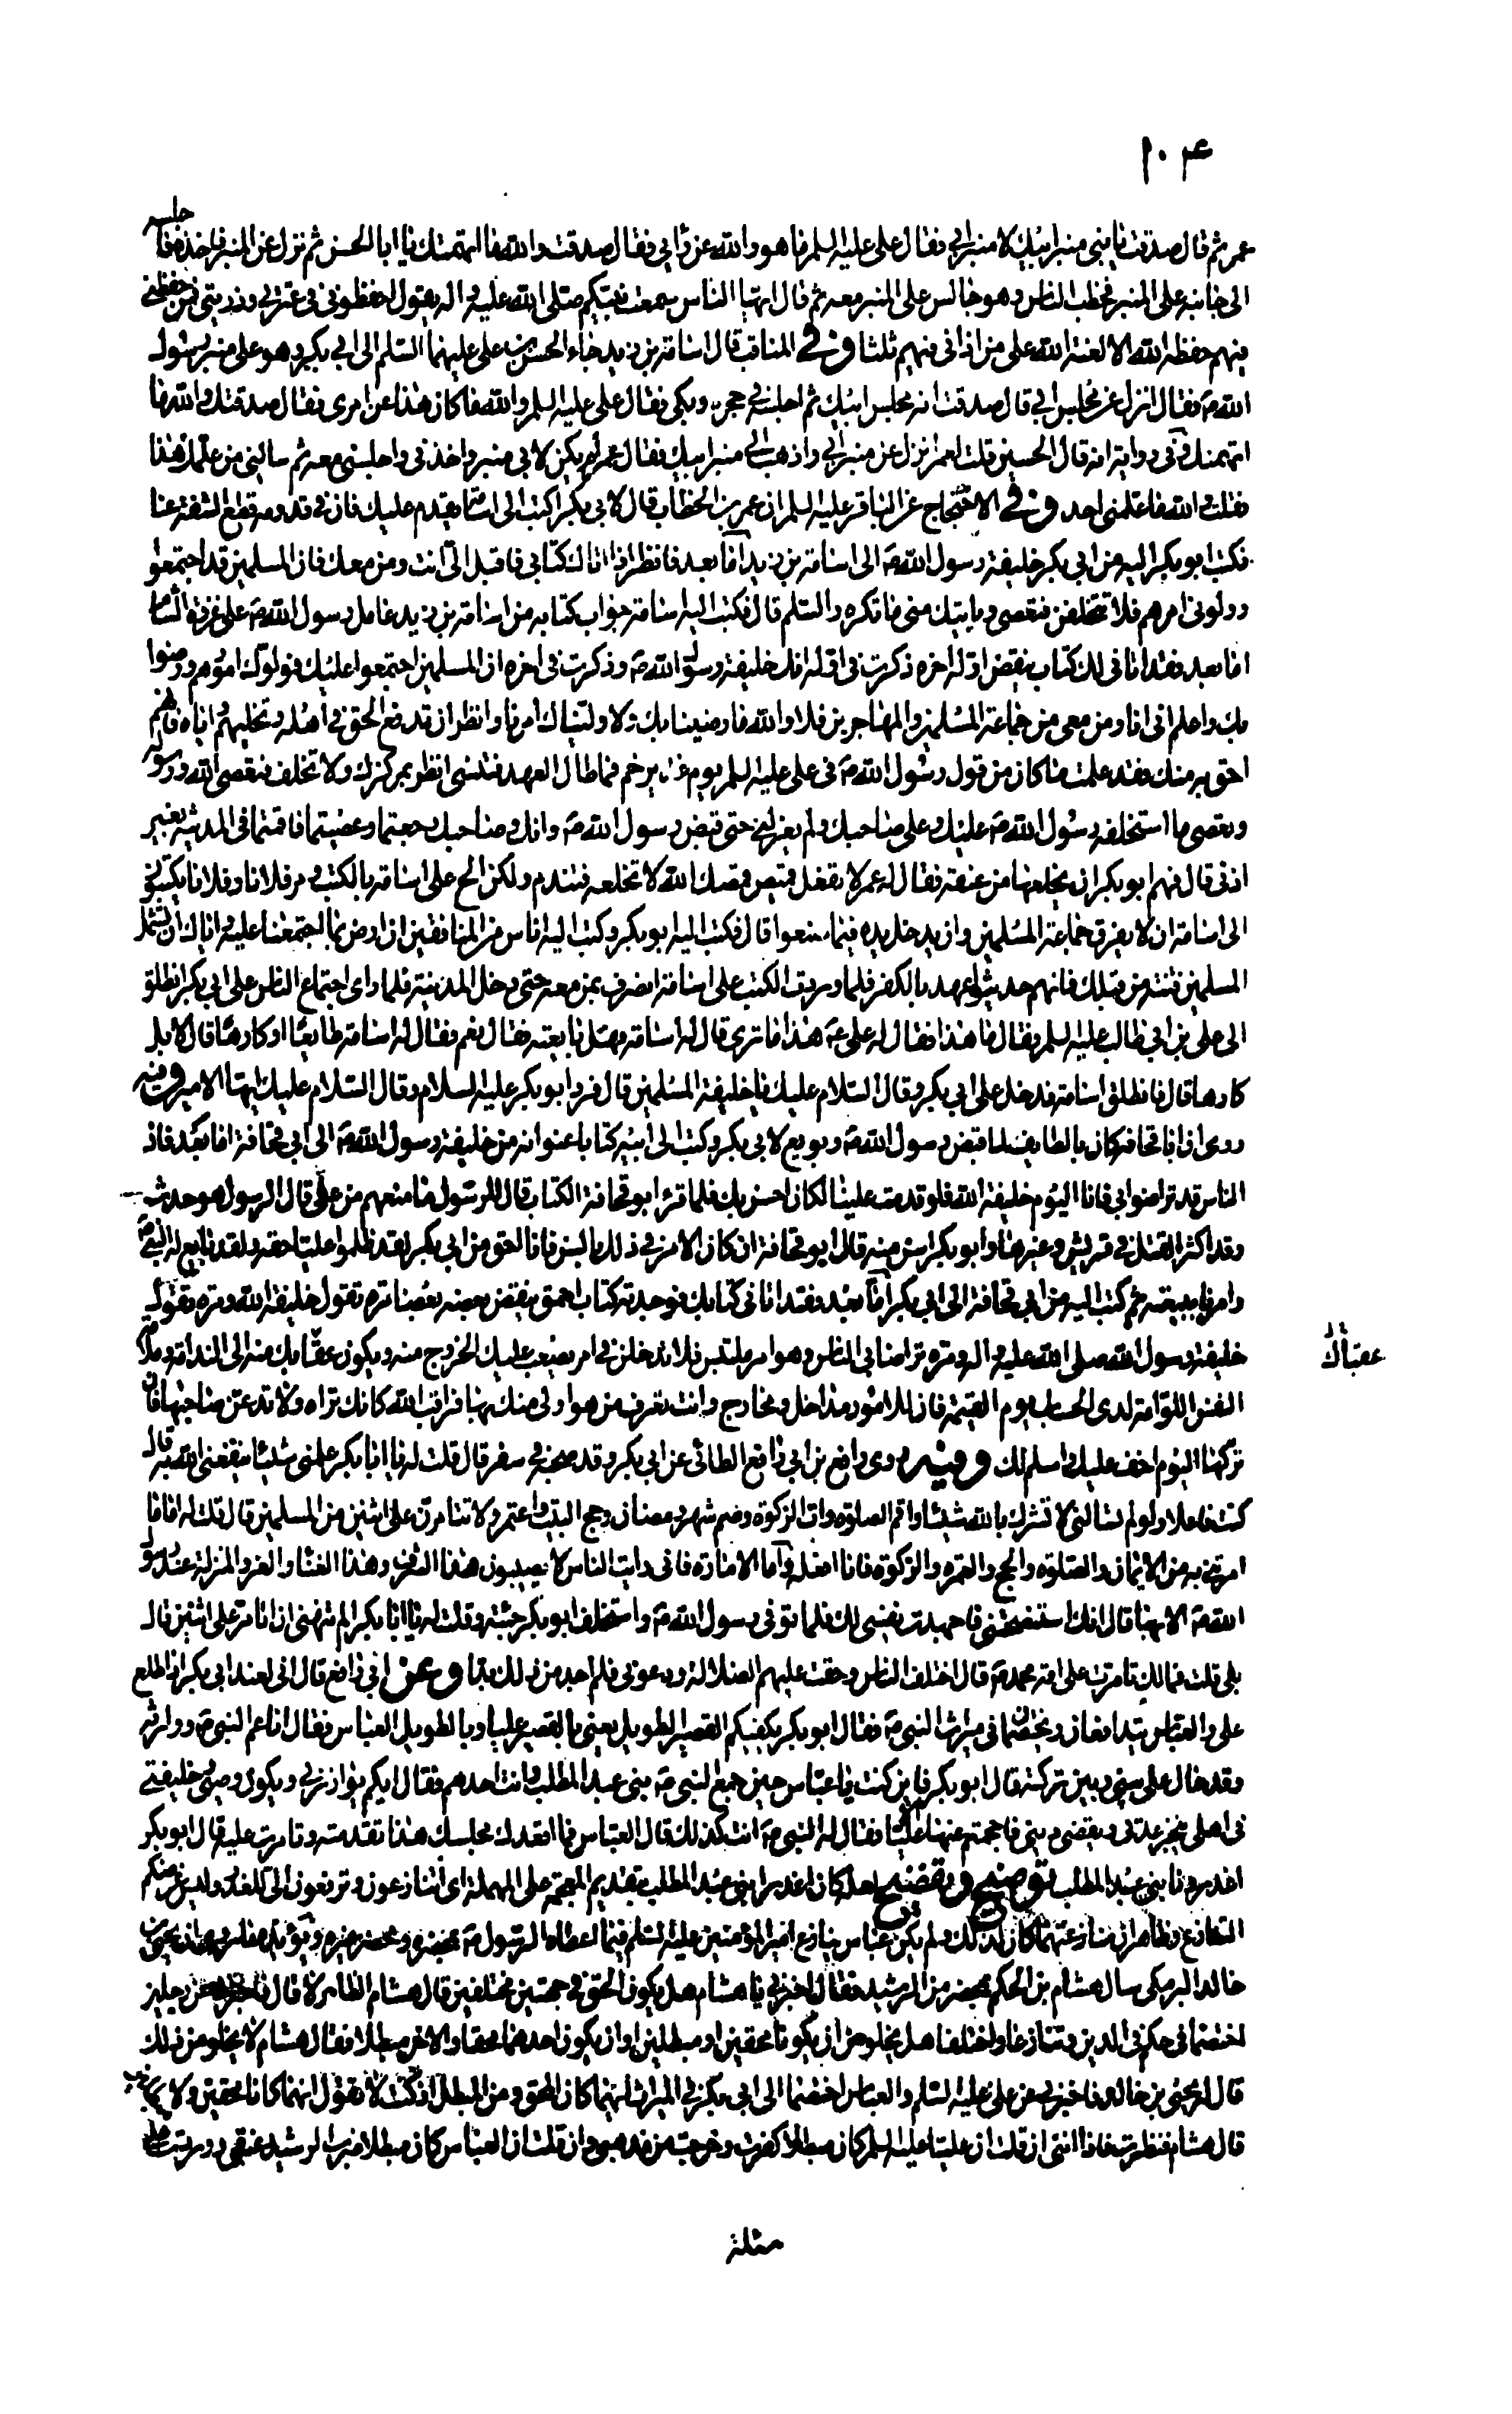 ١٠٤
عمر ثم قال صدقت يا بنى منبر ابيك لا منبر ابى فقال على عليه السلم ما هو والله عن رأيى فقال صدقت والله ما اتهمتك يا ابا الحسن ثم نزل عن المنبر فاخذه فاجلسه
الى جانبه على المنبر فخطب الناس وهو جالس على المنبر معه ثم قال ايها الناس سمعت نبيكم صلى الله عليه واله يقول احفظونى فى عترتى وذريتى فمن حفظنى
فيهم حفظه الله الا لعنة الله على من اذانى فيهم ثلثا وفى المناقب قال اسامة بن زيد جاء الحسن بن على عليهما السلم الى ابى بكر وهو على منبر رسول
الله ص فقال انزل عن مجلس ابى قال صدقت انه مجلس ابيك ثم اجلسه فى حجره وبكى فقال على عليه السلم والله ما كان هذا عن امرى فقال صدقتك والله ما
اتهمتك وفى رواية انه قال الحسين قلت لعمر انزل عن منبر ابى واذهب الى منبر ابيك فقال عمر لم يكن لابى منبر واخذنى واجلسنى معه ثم سألنى من علمك هذا
فقلت والله ما علمنى احد وفى الاحتجاج عن الباقر عليه السلم ان عمر بن الخطاب قال لابى بكر اكتب الى اسامة يقدم عليك فان فى قدومه قطع الشنعة عنا
فكتب ابو بكر اليه من ابى بكر خليفة رسول الله ص الى اسامة بن زيد اما بعد فانظر اذا اتاك كتابى فاقبل الى انت ومن معك فان المسلمين قد اجتمعوا
وولونى امرهم فلا تتخلفن فتعصى وياتيك منى ما تكره والسلم قال فكتب اليه اسامة جواب كتابه من اسامة بن زيد عامل رسول الله ص على غزوة الشام
اما بعد فقد اتانى لك كتاب ينقض اوله اخره ذكرت فى اوله انك خليفة رسول الله ص وذكرت فى اخره ان المسلمين اجتمعوا عليك فولوك امورهم ورضوا
بك واعلم انى انا ومن معى من جماعة المسلمين والمهاجرين فلا والله ما رضينا بك ولا وليناك امرنا وانظر ان تدفع الحق فى اهله وتخليهم اياه فانهم
احق به منك فقد علمت ما كان من قول رسول الله ص فى على عليه السلم يوم غدير خم فما طال العهد فتنسى انظر بمركزك ولا تخلف فتعصى الله ورسوله
وتعصى ما استخلفه رسول الله ص عليك وعلى صاحبك ولم يعزلنى حتى قبض رسول الله ص وانك وصاحبك رجعتما وعصيتما فاقمتما فى المدينة بغير
اذنى قال فهم ابو بكر ان يخلعها من عنقه فقال له عمر لا تفعل قميص قمصك الله لا تخلعه فتندم ولكن الح على اسامة بالكتب ومر فلانا وفلانا يكتبون
الى اسامة ان لا يفرق جماعة المسلمين وان يدخل يده فيما صنعوا قال فكتب اليه ابو بكر وكتب اليه اناس من المنافقين ان ارض بما اجتمعنا عليه واياك ان تشمل
المسلمين فتنة من قبلك فانهم حديثوا عهد بالكفر فلما وردت الكتب على اسامة انصرف بمن معه حتى دخل المدينة فلما راى اجتماع الناس على ابى بكر انطلق
الى على بن ابى طالب عليه السلم وقال ما هذا فقال له على ع هذا ما ترى قال له اسامة فهل بايعته فقال نعم فقال له اسامة طايعا او كارها قال لا بل
كارها قال فانطلق اسامة فدخل على ابى بكر وقال السلام عليك يا خليفة المسلمين قال فرد ابو بكر عليه السلام وقال السلام عليك ايها الامير وفيه
روى ان ابا قحافة كان بالطايف لما قبض رسول الله ص وبويع لابى بكر وكتب الى ابيه كتابا عنوانه من خليفة رسول الله ص الى ابى قحافة اما بعد فان
الناس قد تراضوا بى فانا اليوم خليفة الله فلو قدمت علينا لكان احسن بك فلما قرء ابو قحافة الكتاب قال للرسول ما منعهم من على قال الرسول هو حدث
وقد اكثر القتل فى قريش وغيرها وابو بكر اسن منه قال ابو قحافة ان كان الامر فى ذلك بالسن فانا احق من ابى بكر لقد ظلموا عليا حقه ولقد بايع له النبى ص
وامرنا ببيعته ثم كتب اليه من ابى قحافة الى ابى بكر اما بعد فقد اتانى كتابك فوجدته كتاب احمق ينقض بعضه بعضا مرة تقول خليفة الله ومرة تقول
خليفة رسول الله صلى الله عليه واله ومرة تراضا بى الناس وهو امر ملتبس فلا تدخلن فى امر يصعب عليك الخروج منه ويكون عقباك منه الى الندامة وملامة
عقباك
النفس اللوامة لدى الحساب يوم القيمة فان للامور مداخل ومخارج وانت تعرف من هو اولى منك بها فراقب الله كانك تراه ولا تدعن صاحبها فان
تركها اليوم اخف عليك واسلم لك وفيه روى رافع بن ابى رافع الطائى عن ابى بكر وقد صحبه فى سفر قال قلت له يا ابا بكر علمنى شيئا ينفعنى الله به قال
كنت فاعلا ولو لم تسالنى لا تشرك بالله شيئا واقم الصلوة وات الزكوة وصم شهر رمضان وحج البيت واعتمر ولا تتامرن على اثنين من المسلمين قال قلت له اما ما
امرتنى به من الايمان والصلوة والحج والعمرة والزكوة فانا افعله واما الامارة فانى رايت الناس لا يصيبون هذا الشرف وهذا الغنا والعز والمنزلة عند رسول
الله ص الا بها قال انك استنصحتنى فاجهدت نفسى لك فلما توفى رسول الله ص واستخلف ابو بكر جئته وقلت له يا ابا بكر الم تنهنى ان اتامر على اثنين قال
بلى قلت فما لك تامرت على امة محمد ص قال اختلف الناس وخفت عليهم الضلالة ودعونى فلم اجد من ذلك بدا وعن ابى رافع قال انى لعند ابى بكر اذ اطلع
على والعباس يتدافعان ويختصمان فى ميراث النبى ص فقال ابو بكر يكفيكم القصير الطويل يعنى بالقصير عليا وبالطويل العباس فقال انا عم النبى ص ووارثه
وقد حال على بينى وبين تركته قال ابو بكر فاين كنت يا عباس حين جمع النبى ص بنى عبد المطلب وانت احدهم فقال ايكم يوازرنى ويكون وصيى وخليفتى
فى اهلى ينجز عدتى ويقضى دينى فاحجمتم عنها الا عليا فقال له النبى ص انت كذلك قال العباس فما اقعدك مجلسك هذا تقدمته وتامرت عليه قال ابو بكر
اغدرونا بنى عبد المطلب توضيح وتفضيح لعله كان اغدرا بنى عبد المطلب بتقديم المعجمة على المهملة اى اتنازعون وترفعون الى للغدر وليس غرضكم
التنازع وظاهر ان منازعتهما كان لذلك ولم يكن عباس ينازع امير المؤمنين عليه السلم فيما اعطاه الرسول ص بمحضره ومحضر غيره ويؤيده يحيى بن
خالد البرمكى سال هشام بن الحكم بمحضر من الرشيد فقال اخبرنى يا هشام هل يكون الحق فى جهتين مختلفتين قال هشام الظاهر لا قال فاخبرنى عن رجلين
اختصما فى حكم فى الدين وتنازعا واختلفا هل يخلو من ان يكونا محقين او مبطلين او ان يكون احدهما محقا والاخر مبطلا فقال هشام لا يخلو من ذلك
قال له يحيى بن خالد فاخبرنى عن على عليه السلم والعباس اختصما الى ابى بكر فى الميراث ايهما كان المحق ومن المبطل اذ كنت لا تقول انهما كانا محقين ولا مبطلين
قال هشام فنظرت فاذا اننى ان قلت ان عليا عليه السلم كان مبطلا كفرت وخرجت من مذهبى وان قلت ان العباس كان مبطلا ضرب الرشيد عنقى ووردت على
مسئلة